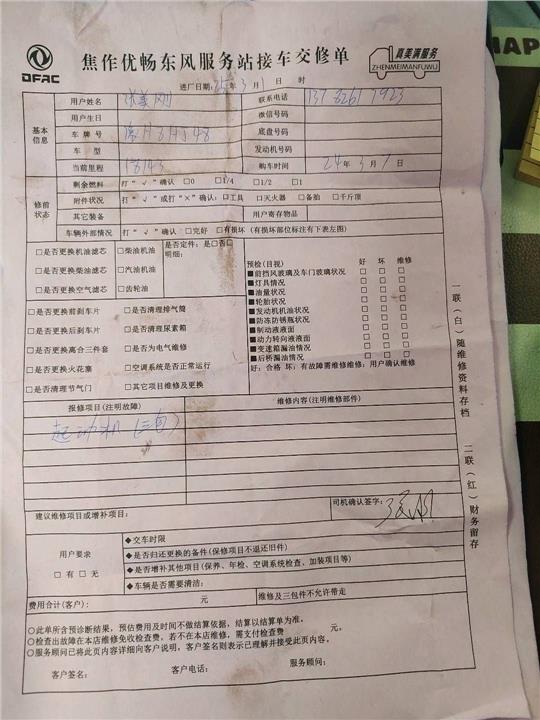 DFAC
焦作优畅东风服务站接车交修单
真美满服务
ZHENMEIMANFUWU
MAP
进厂日期:25年3月1日 时
基本信息
用户姓名
联系电话
用户生日
微信号码
车牌号
底盘号码
车型
发动机号码
当前里程 18143
购车时间 24年3月7日
修前状态
剩余燃料 打“√”确认 □0 □1/4 □1/2 □1
附件状况 打“√”或打“×”确认:□工具 □灭火器 □备胎 □千斤顶
其它装备 用户寄存物品
车辆外部情况 打“√”确认 □完好 □有损坏(有损坏部位标注有下表左图)
□是否更换机油滤芯 □柴油机油
□是否更换柴油滤芯 □汽油机油
□是否更换空气滤芯 □齿轮油
是否定件:是□否□
明细:
□是否更换前刹车片 □是否清理排气筒
□是否更换后刹车片 □是否清理尿素箱
□是否更换离合三件套 □是否为电气维修
□是否更换火花塞 □空调系统是否正常运行
□是否清理节气门 □其它项目维修及更换
预检(目视) 好 坏 维修
■前挡风玻璃及车门玻璃状况 □ □ □
■灯具情况 □ □ □
■油量状况 □ □ □
■轮胎状况 □ □ □
■发动机机油状况 □ □ □
■防冻防锈瓶状况 □ □ □
■制动液液面 □ □ □
■动力转向液液面 □ □ □
■变速箱漏油情况 □ □ □
■后桥漏油情况 □ □ □
好:合格 坏:有故障需维修维修:用户确认维修
报修项目(注明故障) 维修内容(注明维修部件)
起动机(三包)
建议维修项目或增补项目:
司机确认签字:
用户要求
□有□无
◆交车时限
◆是否归还更换的备件(保修项目不退还旧件)
◆是否增补其他项目(保养、年检、空调系统检查、加装项目等)
◆车辆是否需要清洁:
费用合计(客户): 元
维修及三包件不允许带走
○此单所含预诊断结果,预估费用及时间不做结算依据,结算以结算单为准。
○检查出故障在本店维修免收检查费,若不在本店维修,需支付检查费 元。
○服务顾问已将此页内容详细向客户说明,客户签名则表示已理解并接受此页内容。
客户签名: 客户电话: 服务顾问:
一联(白)随维修资料存档
二联(红)财务留存